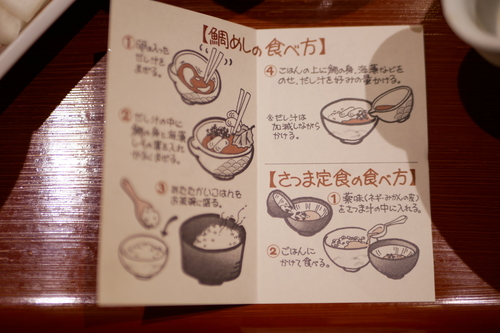 【鯛めしの食べ方】
① 卵の入った
だし汁を
まぜる。
② だし汁の中に
鯛の身と海藻
しその実を入れ
かるくまぜる。
③ あたたかいごはんを
お茶碗に盛る。
④ ごはんの上に鯛の身、海藻などを
のせ、だし汁を好みの量かける。
※だし汁は
加減しながら
かける。
【さつま定食の食べ方】
① 薬味(ネギ・みかんの皮)
をさつま汁の中に入れる。
② ごはんに
かけて食べる。